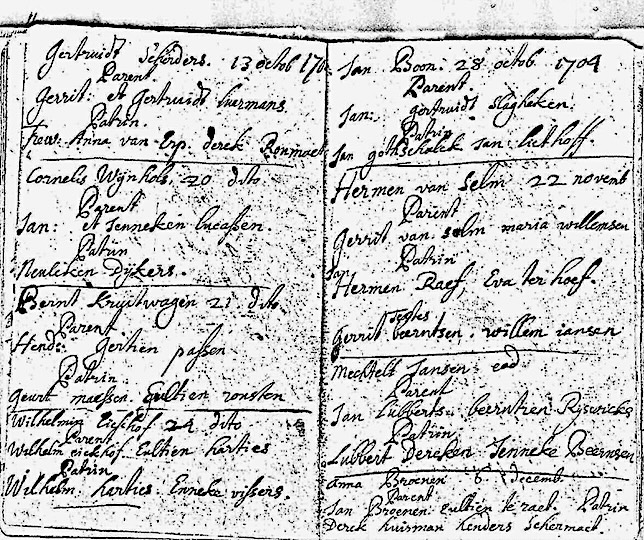 Gertruidt Scholders. 13 octob 170
Parent.
Gerrit: et Gertruidt huermans.
Patrin.
frow: Anna van Erp. derck Roumaet
Cornelis Wijnhols, 20 dito
Parent
Jan: et Jenneken lucassen.
Patrin
Neuleken Dijkers.
Bernt Kruitwagen 21 dito
Parent
Hend: Gertien passen
Patrin
Geurt maessen. Eultien ronsten
Wilhelmin Eickhof 24 dito
Parent
Welhelm eickhof. Eultien harties
Patrin
Wilhelm harties. Enneke vissers.
Jan Boon. 28 octob. 1704
Parent.
Jan: gertruidt slagheken.
Patrin
Jan gothschalck Jan liethoff.
Hermen van Selm 22 novemb
Parent
Gerrit van selm maria willemsen
Patrin
Jan
Hermen Raef, Eva ter hoef.
testes
Gerrit beerntsen. willem iansen
Mechtelt Jansen eod
Parent
Jan Lubberts. beerntien Rijswicks
Patrin
Lubbert Dercken Jenneke Beernsen
Anna Broenen 8 decemb.
Parent
Jan Broenen. Eultien te raet. Patrin
Derck huisman henders Schermaet.